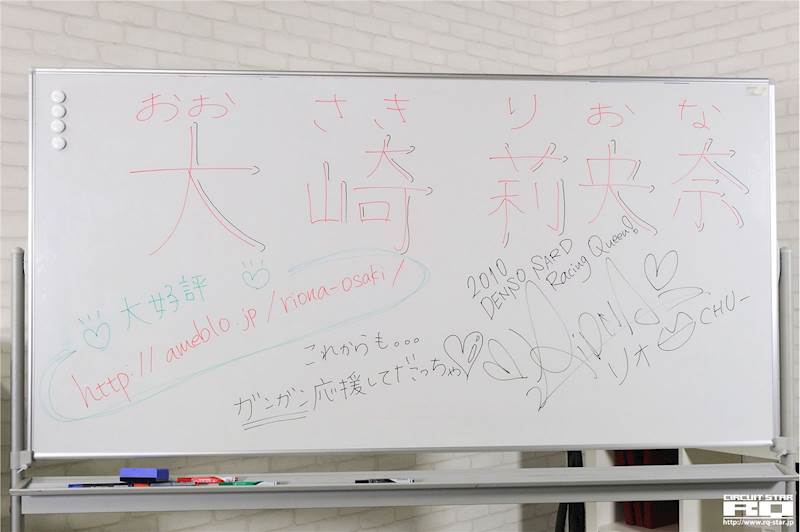 おお さき りおな
大崎 莉央奈
大好評
http://ameblo.jp/riona-osaki/
2010
DENSO SARD
Racing Queen!
これからも...
ガンガン応援してだっちゃ
リオ CHU-
CIRCUIT STAR
RQ
http://www.rq-star.jp